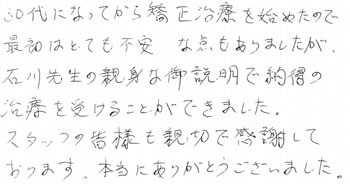 30代になってから矯正治療を始めたので
最初はとても不安 な点もありましたが、
石川先生の親身な御説明で納得の
治療を受けることができました。
スタッフの皆様も親切で感謝して
おります。本当にありがとうございました。